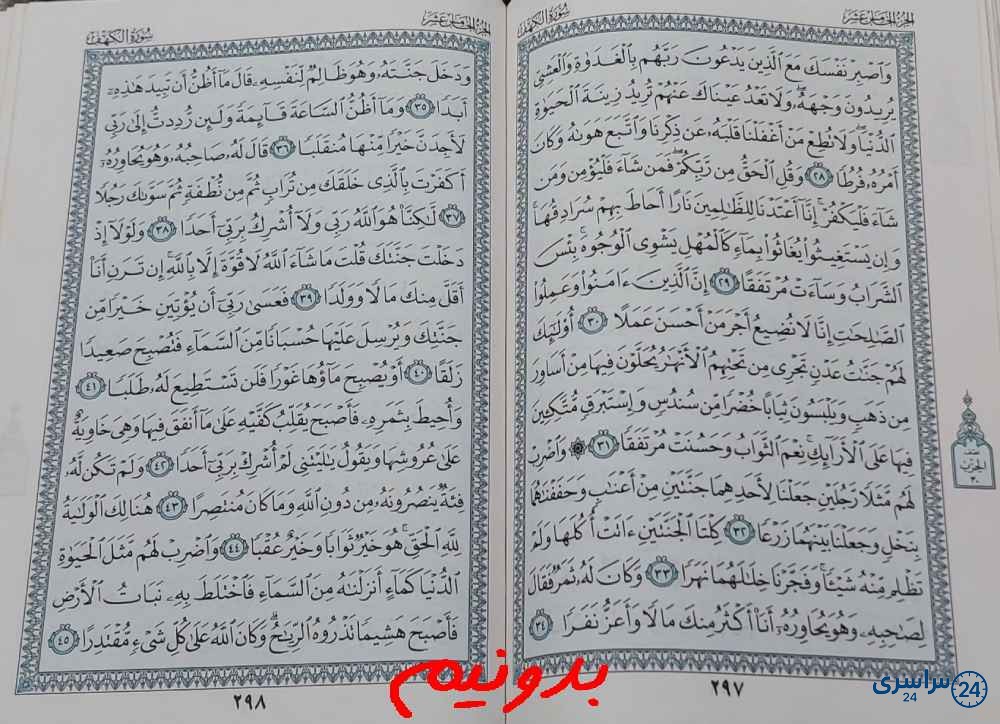 الجزء الخامس عشر
سورة الكهف
وَٱصْبِرْ نَفْسَكَ مَعَ ٱلَّذِينَ يَدْعُونَ رَبَّهُم بِٱلْغَدَوٰةِ وَٱلْعَشِىِّ
يُرِيدُونَ وَجْهَهُۥ ۖ وَلَا تَعْدُ عَيْنَاكَ عَنْهُمْ تُرِيدُ زِينَةَ ٱلْحَيَوٰةِ
ٱلدُّنْيَا ۖ وَلَا تُطِعْ مَنْ أَغْفَلْنَا قَلْبَهُۥ عَن ذِكْرِنَا وَٱتَّبَعَ هَوَىٰهُ وَكَانَ
أَمْرُهُۥ فُرُطًا ٢٨ وَقُلِ ٱلْحَقُّ مِن رَّبِّكُمْ ۖ فَمَن شَآءَ فَلْيُؤْمِن وَمَن
شَآءَ فَلْيَكْفُرْ ۚ إِنَّآ أَعْتَدْنَا لِلظَّٰلِمِينَ نَارًا أَحَاطَ بِهِمْ سُرَادِقُهَا ۚ
وَإِن يَسْتَغِيثُوا۟ يُغَاثُوا۟ بِمَآءٍ كَٱلْمُهْلِ يَشْوِى ٱلْوُجُوهَ ۚ بِئْسَ
ٱلشَّرَابُ وَسَآءَتْ مُرْتَفَقًا ٢٩ إِنَّ ٱلَّذِينَ ءَامَنُوا۟ وَعَمِلُوا۟
ٱلصَّٰلِحَٰتِ إِنَّا لَا نُضِيعُ أَجْرَ مَنْ أَحْسَنَ عَمَلًا ٣٠ أُو۟لَٰٓئِكَ
لَهُمْ جَنَّٰتُ عَدْنٍ تَجْرِى مِن تَحْتِهِمُ ٱلْأَنْهَٰرُ يُحَلَّوْنَ فِيهَا مِنْ أَسَاوِرَ
مِن ذَهَبٍ وَيَلْبَسُونَ ثِيَابًا خُضْرًا مِّن سُندُسٍ وَإِسْتَبْرَقٍ مُّتَّكِـِٔينَ
فِيهَا عَلَى ٱلْأَرَآئِكِ ۚ نِعْمَ ٱلثَّوَابُ وَحَسُنَتْ مُرْتَفَقًا ٣١ ۞ وَٱضْرِبْ
لَهُم مَّثَلًا رَّجُلَيْنِ جَعَلْنَا لِأَحَدِهِمَا جَنَّتَيْنِ مِنْ أَعْنَٰبٍ وَحَفَفْنَٰهُمَا
بِنَخْلٍ وَجَعَلْنَا بَيْنَهُمَا زَرْعًا ٣٢ كِلْتَا ٱلْجَنَّتَيْنِ ءَاتَتْ أُكُلَهَا وَلَمْ
تَظْلِم مِّنْهُ شَيْـًٔا ۚ وَفَجَّرْنَا خِلَٰلَهُمَا نَهَرًا ٣٣ وَكَانَ لَهُۥ ثَمَرٌ فَقَالَ
لِصَٰحِبِهِۦ وَهُوَ يُحَاوِرُهُۥٓ أَنَا۠ أَكْثَرُ مِنكَ مَالًا وَأَعَزُّ نَفَرًا ٣٤
٢٩٧
نصف
الحزب
٣٠
الجزء الخامس عشر
سورة الكهف
وَدَخَلَ جَنَّتَهُۥ وَهُوَ ظَالِمٌ لِّنَفْسِهِۦ قَالَ مَآ أَظُنُّ أَن تَبِيدَ هَٰذِهِۦٓ
أَبَدًا ٣٥ وَمَآ أَظُنُّ ٱلسَّاعَةَ قَآئِمَةً وَلَئِن رُّدِدتُّ إِلَىٰ رَبِّى
لَأَجِدَنَّ خَيْرًا مِّنْهَا مُنقَلَبًا ٣٦ قَالَ لَهُۥ صَاحِبُهُۥ وَهُوَ يُحَاوِرُهُۥٓ
أَكَفَرْتَ بِٱلَّذِى خَلَقَكَ مِن تُرَابٍ ثُمَّ مِن نُّطْفَةٍ ثُمَّ سَوَّىٰكَ رَجُلًا
٣٧ لَّٰكِنَّا۠ هُوَ ٱللَّهُ رَبِّى وَلَآ أُشْرِكُ بِرَبِّىٓ أَحَدًا ٣٨ وَلَوْلَآ إِذْ
دَخَلْتَ جَنَّتَكَ قُلْتَ مَا شَآءَ ٱللَّهُ لَا قُوَّةَ إِلَّا بِٱللَّهِ ۚ إِن تَرَنِ أَنَا۠
أَقَلَّ مِنكَ مَالًا وَوَلَدًا ٣٩ فَعَسَىٰ رَبِّىٓ أَن يُؤْتِيَنِ خَيْرًا مِّن
جَنَّتِكَ وَيُرْسِلَ عَلَيْهَا حُسْبَانًا مِّنَ ٱلسَّمَآءِ فَتُصْبِحَ صَعِيدًا
زَلَقًا ٤٠ أَوْ يُصْبِحَ مَآؤُهَا غَوْرًا فَلَن تَسْتَطِيعَ لَهُۥ طَلَبًا ٤١
وَأُحِيطَ بِثَمَرِهِۦ فَأَصْبَحَ يُقَلِّبُ كَفَّيْهِ عَلَىٰ مَآ أَنفَقَ فِيهَا وَهِىَ خَاوِيَةٌ
عَلَىٰ عُرُوشِهَا وَيَقُولُ يَٰلَيْتَنِى لَمْ أُشْرِكْ بِرَبِّىٓ أَحَدًا ٤٢ وَلَمْ تَكُن لَّهُۥ
فِئَةٌ يَنصُرُونَهُۥ مِن دُونِ ٱللَّهِ وَمَا كَانَ مُنتَصِرًا ٤٣ هُنَالِكَ ٱلْوَلَٰيَةُ
لِلَّهِ ٱلْحَقِّ ۚ هُوَ خَيْرٌ ثَوَابًا وَخَيْرٌ عُقْبًا ٤٤ وَٱضْرِبْ لَهُم مَّثَلَ ٱلْحَيَوٰةِ
ٱلدُّنْيَا كَمَآءٍ أَنزَلْنَٰهُ مِنَ ٱلسَّمَآءِ فَٱخْتَلَطَ بِهِۦ نَبَاتُ ٱلْأَرْضِ
فَأَصْبَحَ هَشِيمًا تَذْرُوهُ ٱلرِّيَٰحُ ۗ وَكَانَ ٱللَّهُ عَلَىٰ كُلِّ شَىْءٍ مُّقْتَدِرًا ٤٥
٢٩٨
بدونیم
سراسری
24
24